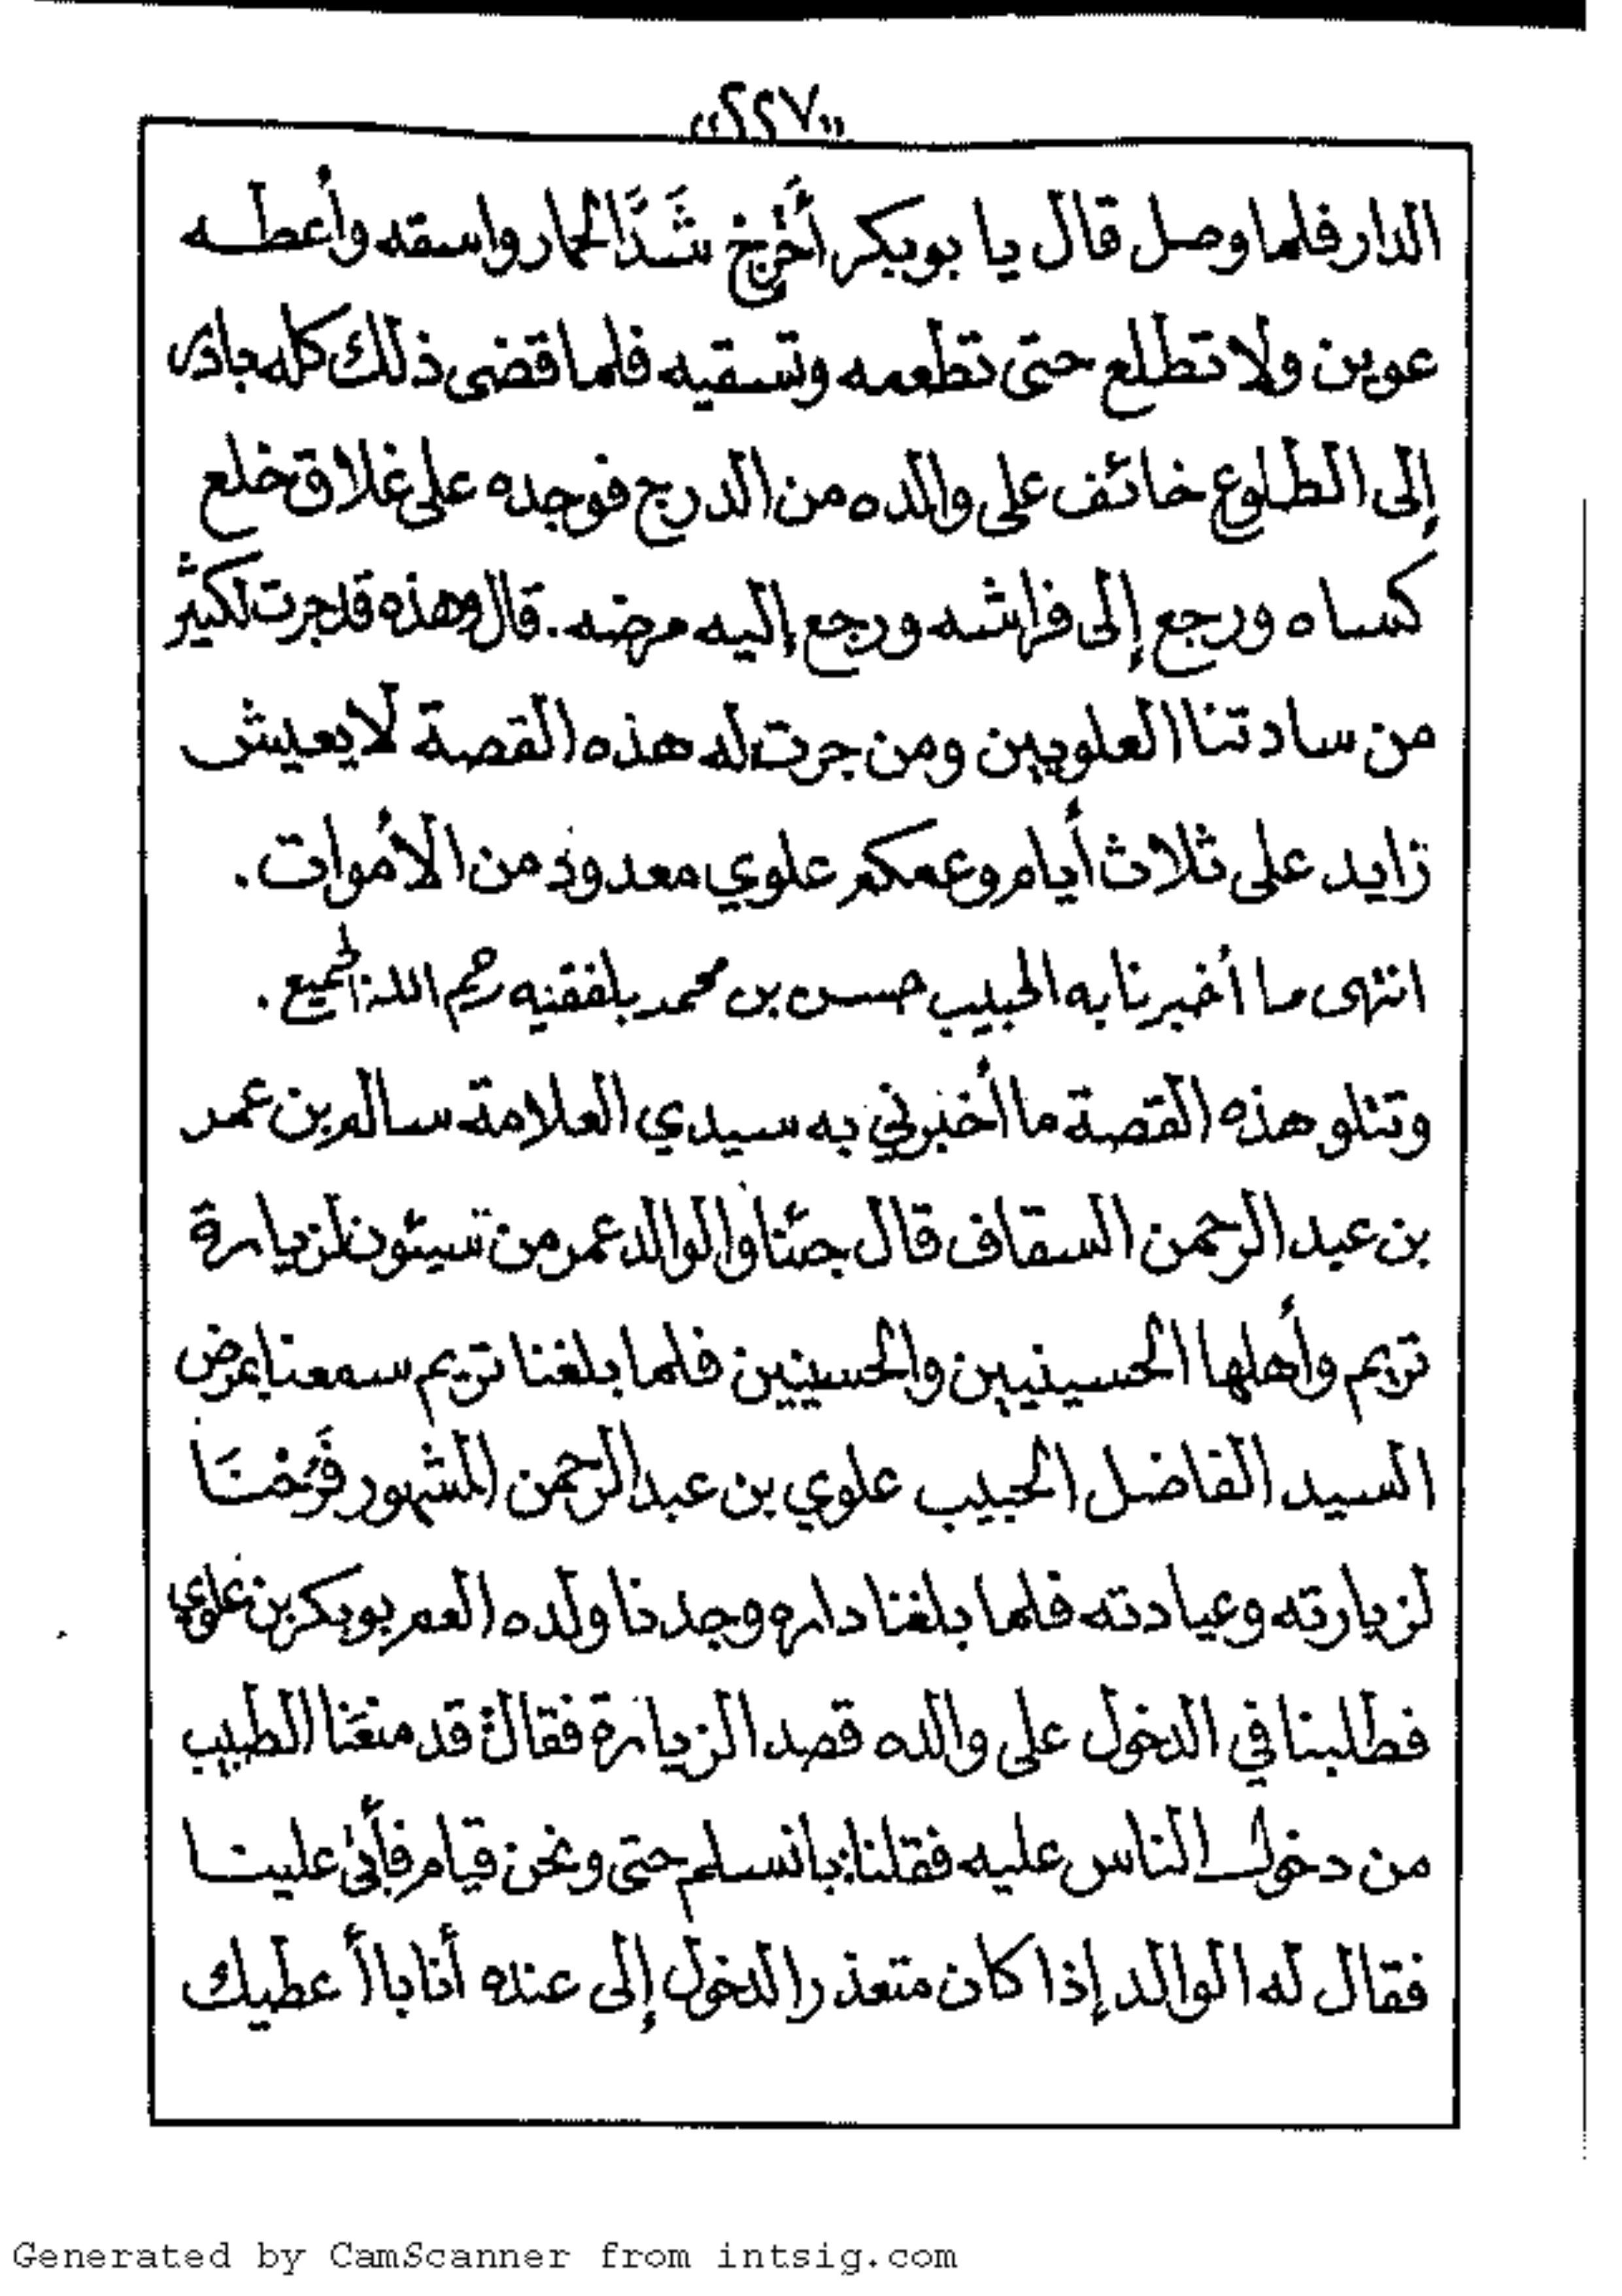 «٢٢٧»
الدار فلما وصل قال يا بوبكر أَخْرِج شَدَّ الحمار واسقه وأعطــه
عوين ولا تطلع حتى تطعمه وتسقيه فلما قضى ذلك كله بادر
إلى الطلوع خائف على والده من الدرج فوجده على غلاق خلع
كساه ورجع إلى فراشه ورجع إليه مرضه . قال وهذه قد جرت لكثير
من سادتنا العلويين ومن جرت له هذه القصة لا يعيش
زايد على ثلاث أيام وعمكم علوي معدود من الأموات .
انتهى ما أخبرنا به الحبيب حسن بن محمد بلفقيه رحم الله الجميع .
وتتلو هذه القصة ما أخبرني به سيدي العلامة سالم بن عمر
بن عبد الرحمن السقاف قال جئنا والوالد عمر من سيئون لزيارة
تريم وأهلها الحسينيين والحسنيين فلما بلغنا تريم سمعنا بمرض
السيد الفاضل الحبيب علوي بن عبد الرحمن المشهور فَرُحْنَا
لزيارته وعيادته فلما بلغنا داره وجدنا ولده العم بوبكر بن علوي
فطلبنا في الدخول على والده قصد الزيارة فقال قد منعَنا الطبيب
من دخول الناس عليه فقلنا بانسلم حتى ونحن قيام فأبى علينا
فقال له الوالد إذا كان متعذر الدخول إلى عنده أنا باأعطيك
Generated by CamScanner from intsig.com